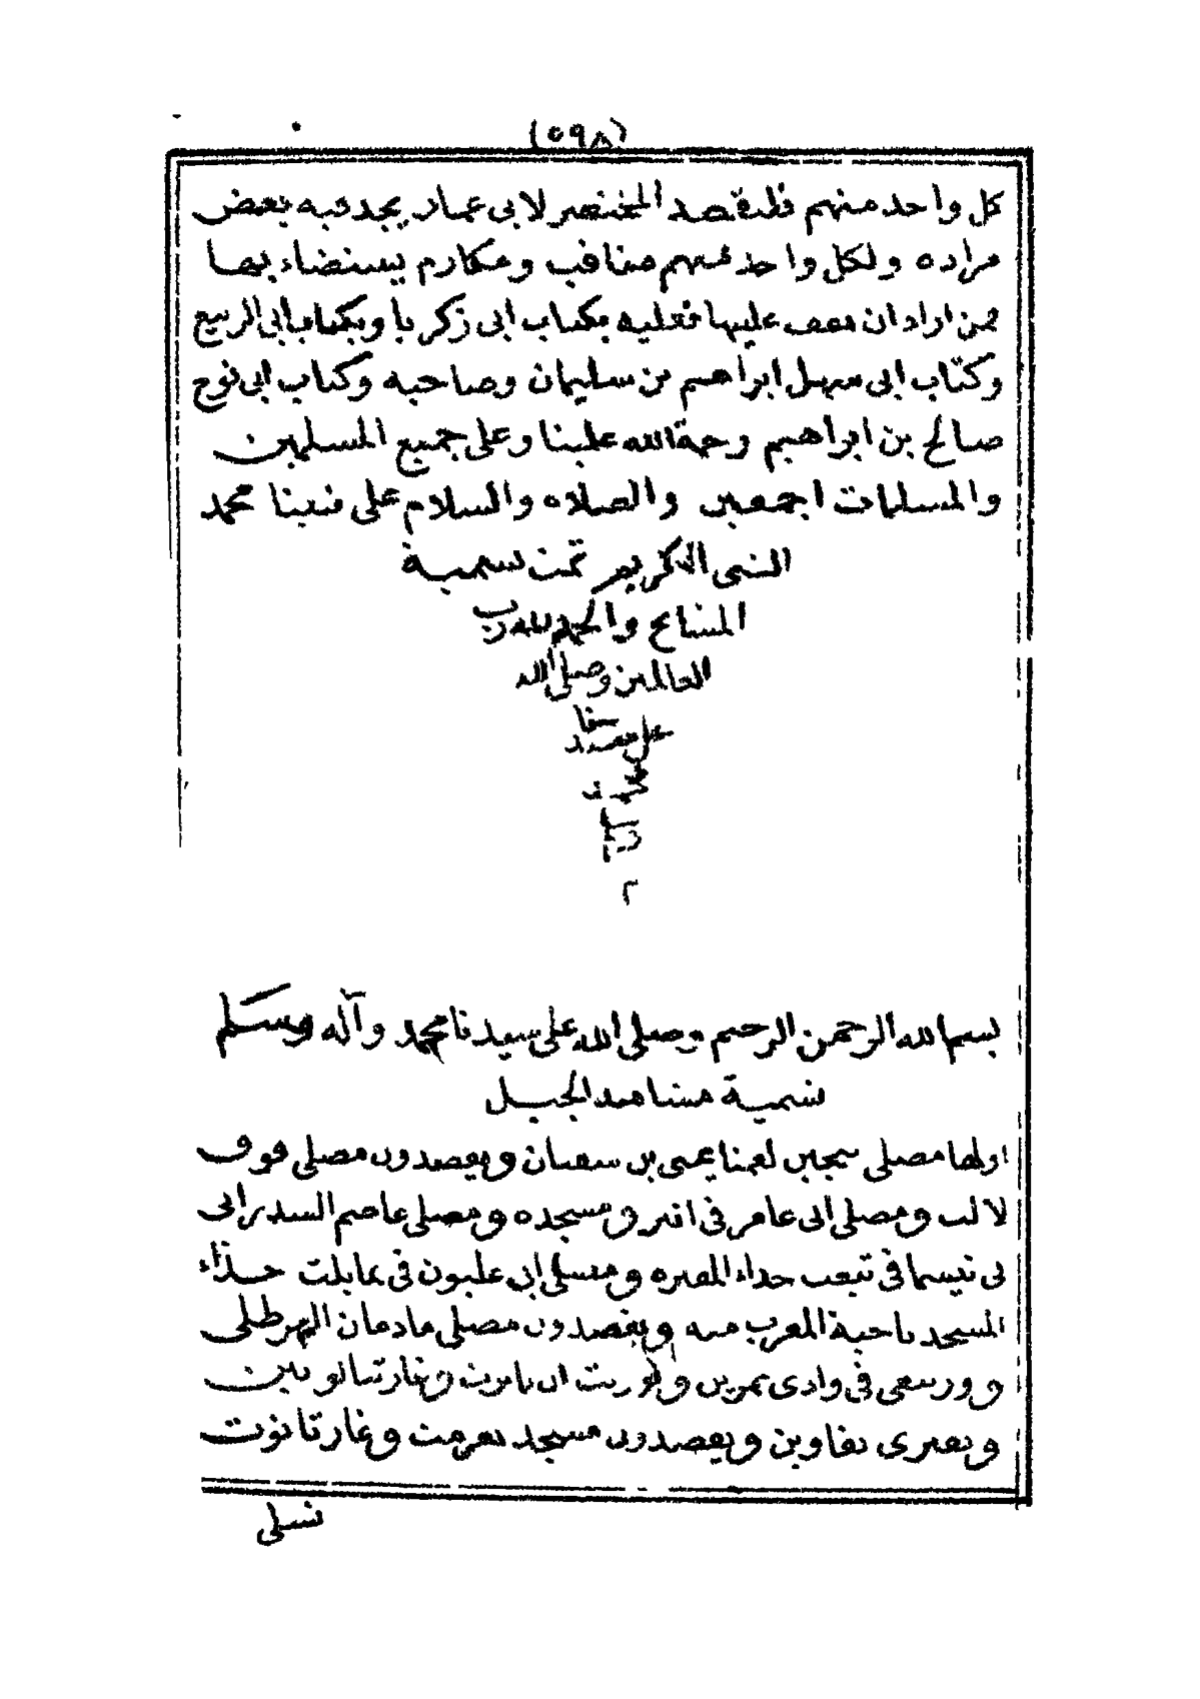 (٥٩٨)
كل واحد منهم فليقصد المختصر لابى عمار يجد فيه بعض
مراده ولكل واحد منهم مناقب ومكارم يستضاء بها
فمن اراد ان يقف عليها فعليه بكتاب ابى زكريا وبكتاب ابى الربيع
وكتاب ابى سهل ابراهيم بن سليمان وصاحبه وكتاب ابى نوح
صالح بن ابراهيم رحمة الله علينا وعلى جميع المسلمين
والمسلمات اجمعين والصلاه والسلام على نبينا محمد
النبى الكريم تمت تسمية
المشايخ والحمد لله رب
العالمين وصلى الله
على سيدنا
محمد
م
بسم الله الرحمن الرحيم وصلى الله على سيدنا محمد وآله وسلم
تسمية مشاهد الجبل
اولها مصلى يجين لعمنا يحيى بن سفيان ويقصدون مصلى فوق
لالت ومصلى ابى عامر فى افر ومسجده ومصلى عاصم السدراتى
فى تيسما فى تيعب حذاء المصره ومصلى ابى عليون فى تمايلت حذاء
المسجد ناحية المغرب منه ويقصدون مصلى مادمان الهرطلى
وورسعى فى وادى تمرين و ان يامرت وغار تسانو بين
وتعرى بفاوين ويقصدون مسجد تعرمت وغار تانوت
تسلى